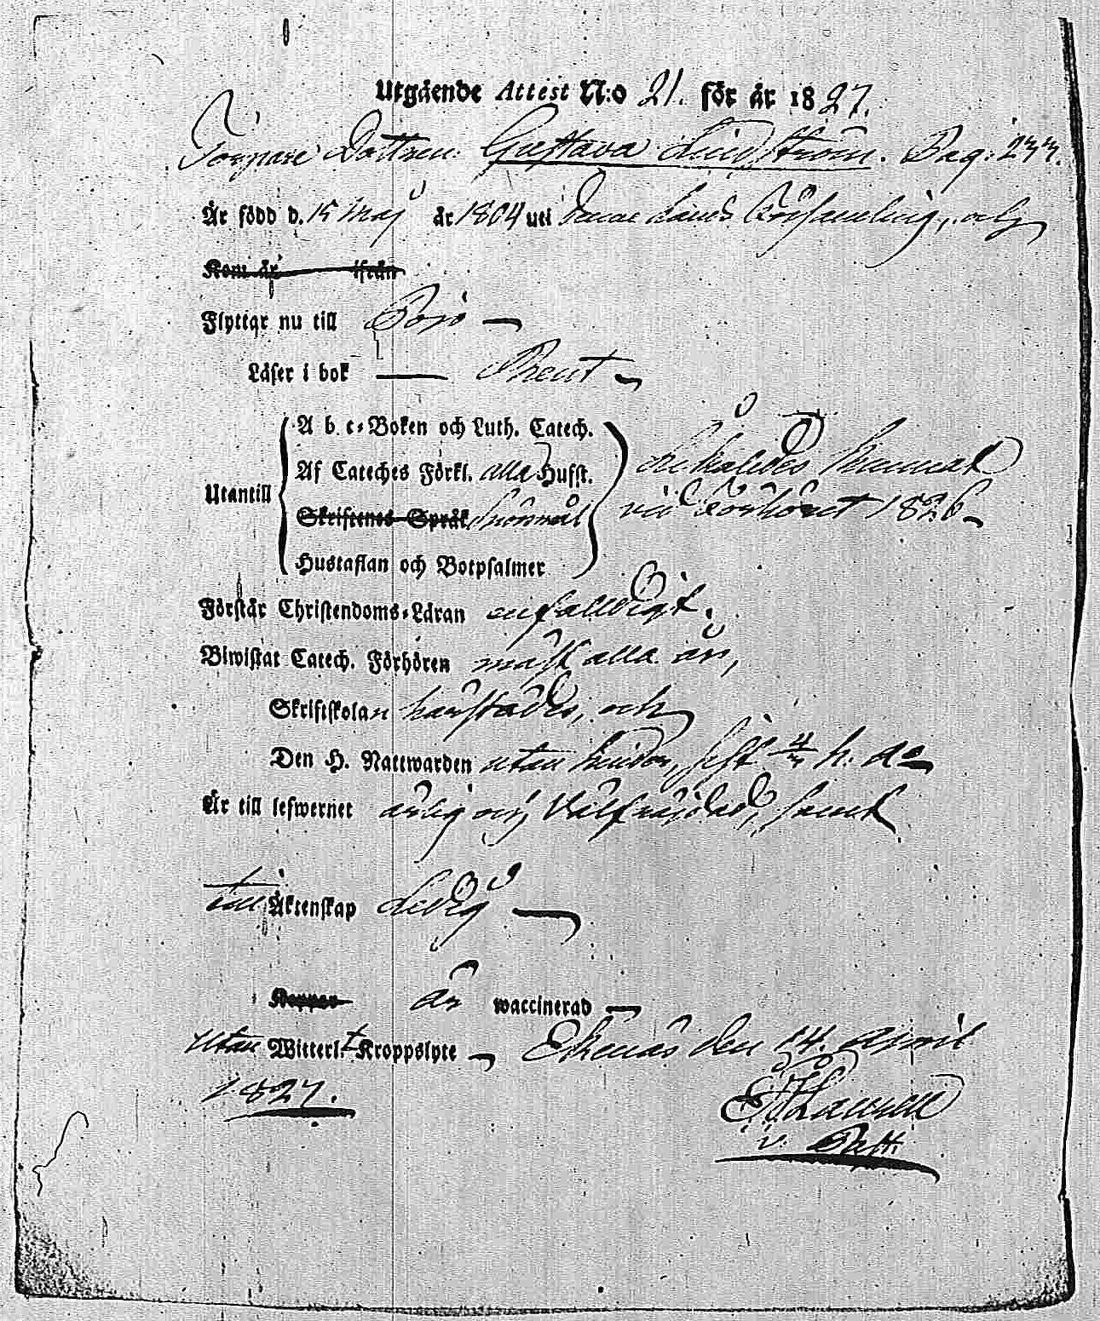 Utgående Attest N:o 21. för år 1827.
Torpare Dottren Gustava Lindström. Pag: 233.
Är född d. 15 Maj år 1804 uti denne Lands Församling, och
Kom år ifrån
Flyttar nu till Pojo —
Läser i bok — Rent —
A b c-Boken och Luth. Catech.
Af Cateches Förkl. alla Hufst. Likaledes kunnat
Utantill
Skriftenes Språk vid Förhöret 1826 —
Hustaflan och Botpsalmer
Förstår Christendoms-Läran enfaldigt.
Biwistat Catech. Förhören mäst alla år,
Skriftskolan härstädes, och
Den H. Nattwarden utan hinder, sist h. a. —
Är till lefwernet ärlig och Välfräjdad, samt
till Äktenskap Ledig —
Koppor är waccinerad —
utan Witterl.t Kroppslyte — Ekenäs den 14. April
1827.
v. Past.